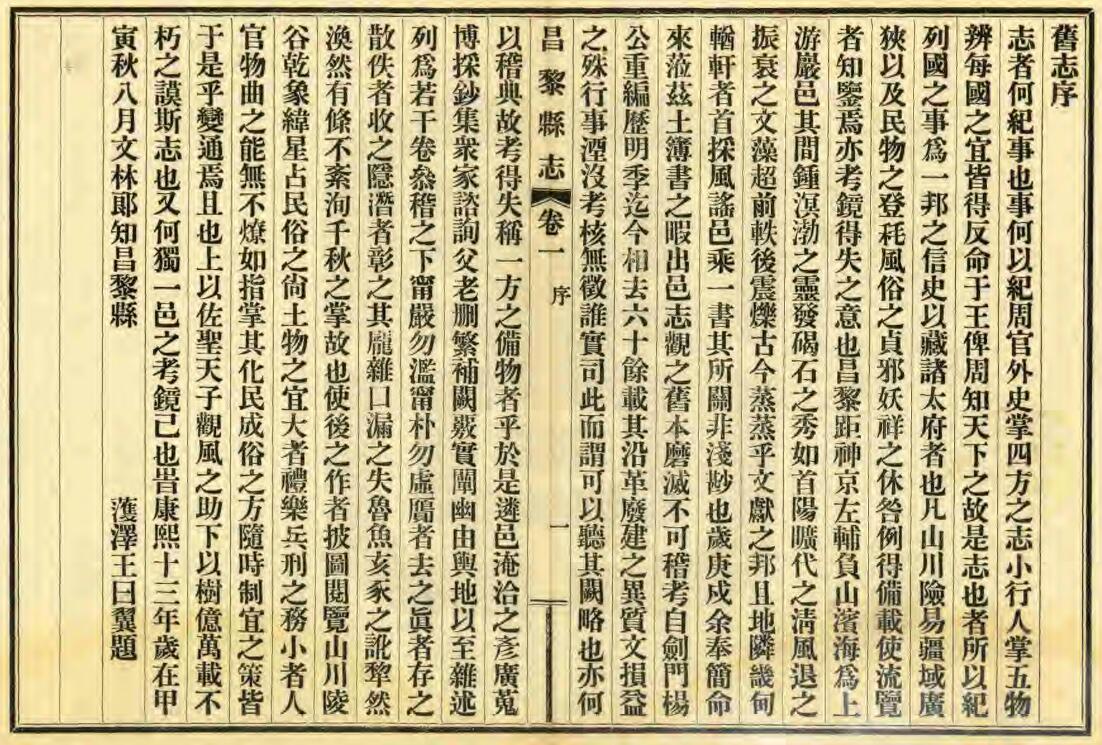 舊志序
志者何紀事也事何以紀周官外史掌四方之志小行人掌五物
辨每國之宜皆得反命于王俾周知天下之故是志也者所以紀
列國之事爲一邦之信史以藏諸太府者也凡山川險易疆域廣
狹以及民物之登耗風俗之貞邪妖祥之休咎例得備載使流覽
者知鑒焉亦考鏡得失之意也昌黎距神京左輔負山濱海爲上
游巖邑其間鍾溟渤之靈發碣石之秀如首陽曠代之淸風退之
振衰之文藻超前軼後震爍古今蒸蒸乎文獻之邦且地隣畿甸
輶軒者首採風謠邑乘一書其所關非淺尠也歲庚戍余奉簡命
來蒞茲土簿書之暇出邑志觀之舊本磨滅不可稽考自劍門楊
公重編歷明季迄今相去六十餘載其沿革廢建之異質文損益
之殊行事湮沒考核無徵誰實司此而謂可以聽其闕略也亦何
昌黎縣志 卷一 序 一
以稽典故考得失稱一方之備物者乎於是遴邑淹洽之彥廣蒐
博採鈔集衆家諮詢父老刪繁補闕覈實闡幽由輿地以至雜述
列爲若干卷叅稽之下甯嚴勿濫甯朴勿虛贗者去之眞者存之
散佚者收之隱潛者彰之其龐雜口漏之失魯魚亥豕之訛犂然
渙然有條不紊洵千秋之掌故也使後之作者披圖閱覽山川陵
谷乾象緯星占民俗之尙土物之宜大者禮樂兵刑之務小者人
官物曲之能無不燎如指掌其化民成俗之方隨時制宜之策皆
于是乎變通焉且也上以佐聖天子觀風之助下以樹億萬載不
朽之謨斯志也又何獨一邑之考鏡已也旹康熙十三年歲在甲
寅秋八月文林郞知昌黎縣 濩澤王曰翼題